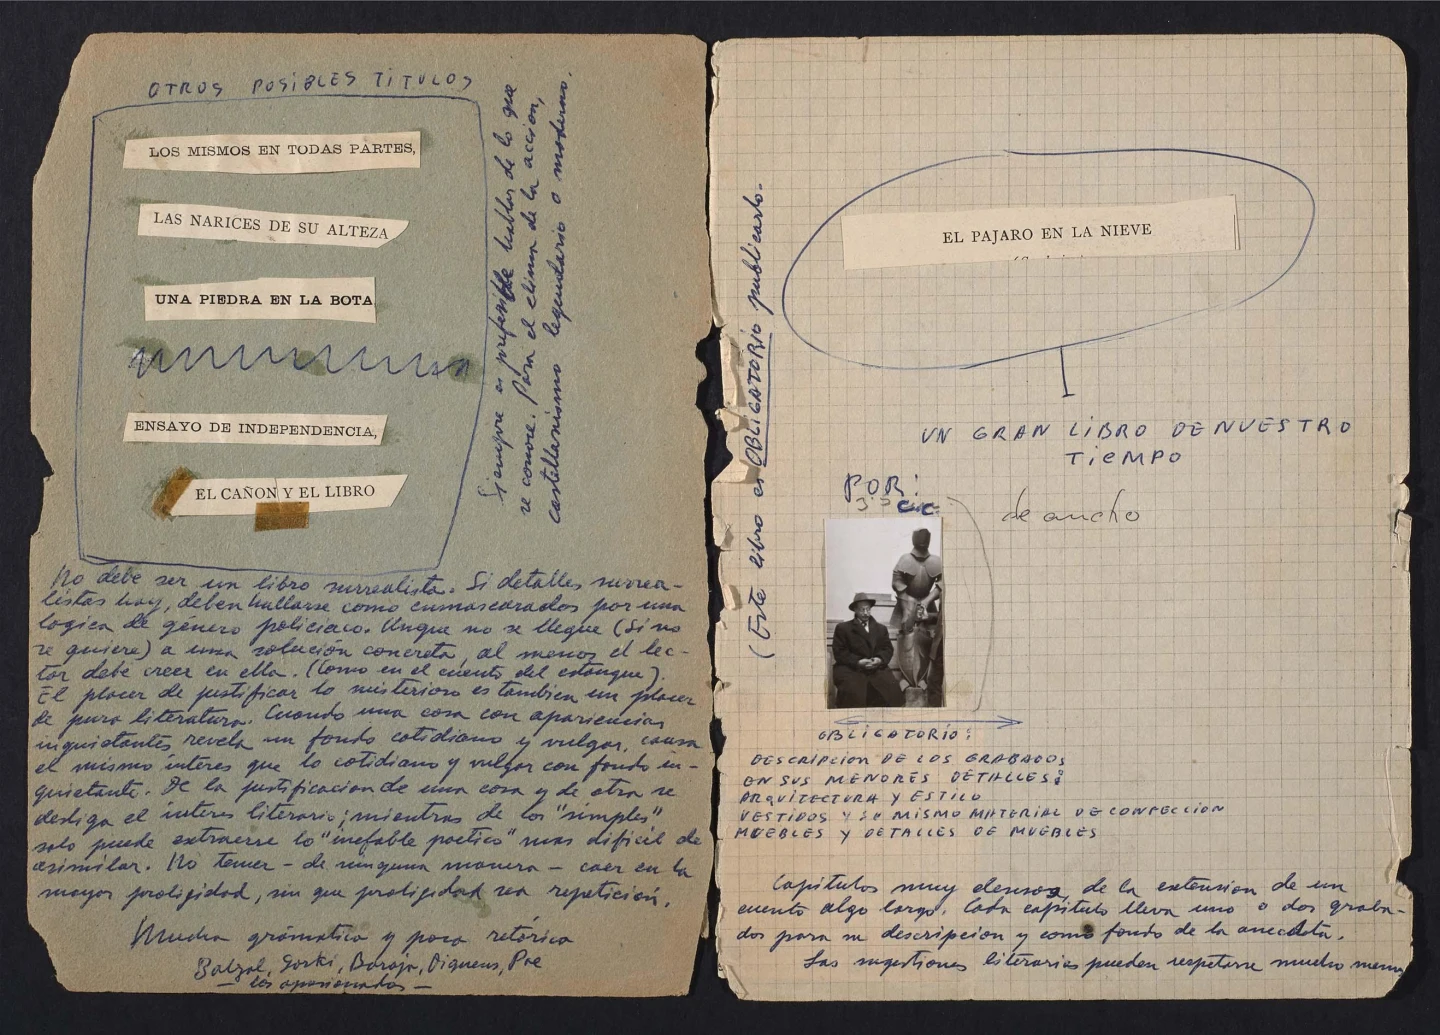 OTROS POSIBLES TITULOS
LOS MISMOS EN TODAS PARTES,
LAS NARICES DE SU ALTEZA
UNA PIEDRA EN LA BOTA
ENSAYO DE INDEPENDENCIA,
EL CAÑON Y EL LIBRO
Siempre es preferible hablar de lo que
se conoce. Para el clima de la accion,
castellanismo legendario o moderno.
No debe ser un libro surrealista. Si detalles surrea-
listas hay, deben hallarse como enmascarados por una
logica de género policiaco. Unque no se llegue (Si no
se quiere) a una solución concreta, al menos el lec-
tor debe creer en ella. (Como en el cuento del estanque).
El placer de justificar lo misterioso es tambien un placer
de pura literatura. Cuando una cosa con apariencias
inquietantes revela un fondo cotidiano y vulgar, causa
el mismo interes que lo cotidiano y vulgar con fondo in-
quietante. De la justificacion de una cosa y de otra se
desliga el interes literario; mientras de los "simples"
solo puede extraerse lo "inefable poetico" mas dificil de
asimilar. No temer - de ninguna manera - caer en la
mayor prolijidad, sin que prolijidad sea repetición.
Mucha gramatica y poca retórica
Balzal, Gorki, Baroja, Diquens, Poe
— los apasionados —
(Este libro es OBLIGATORIO publicarlo.
EL PAJARO EN LA NIEVE
UN GRAN LIBRO DE NUESTRO
TIEMPO
POR:
de ancho
OBLIGATORIO:
DESCRIPCION DE LOS GRABADOS
EN SUS MENORES DETALLES:
ARQUITECTURA Y ESTILO
VESTIDOS Y SU MISMO MATERIAL DE CONFECCION
MUEBLES Y DETALLES DE MUEBLES
Capítulos muy densos, de la extension de un
cuento algo largo. Cada capítulo lleva uno o dos graba-
dos para su descripcion y como fondo de la anecdota.
Las sugestiones literarias pueden respetarse mucho menos